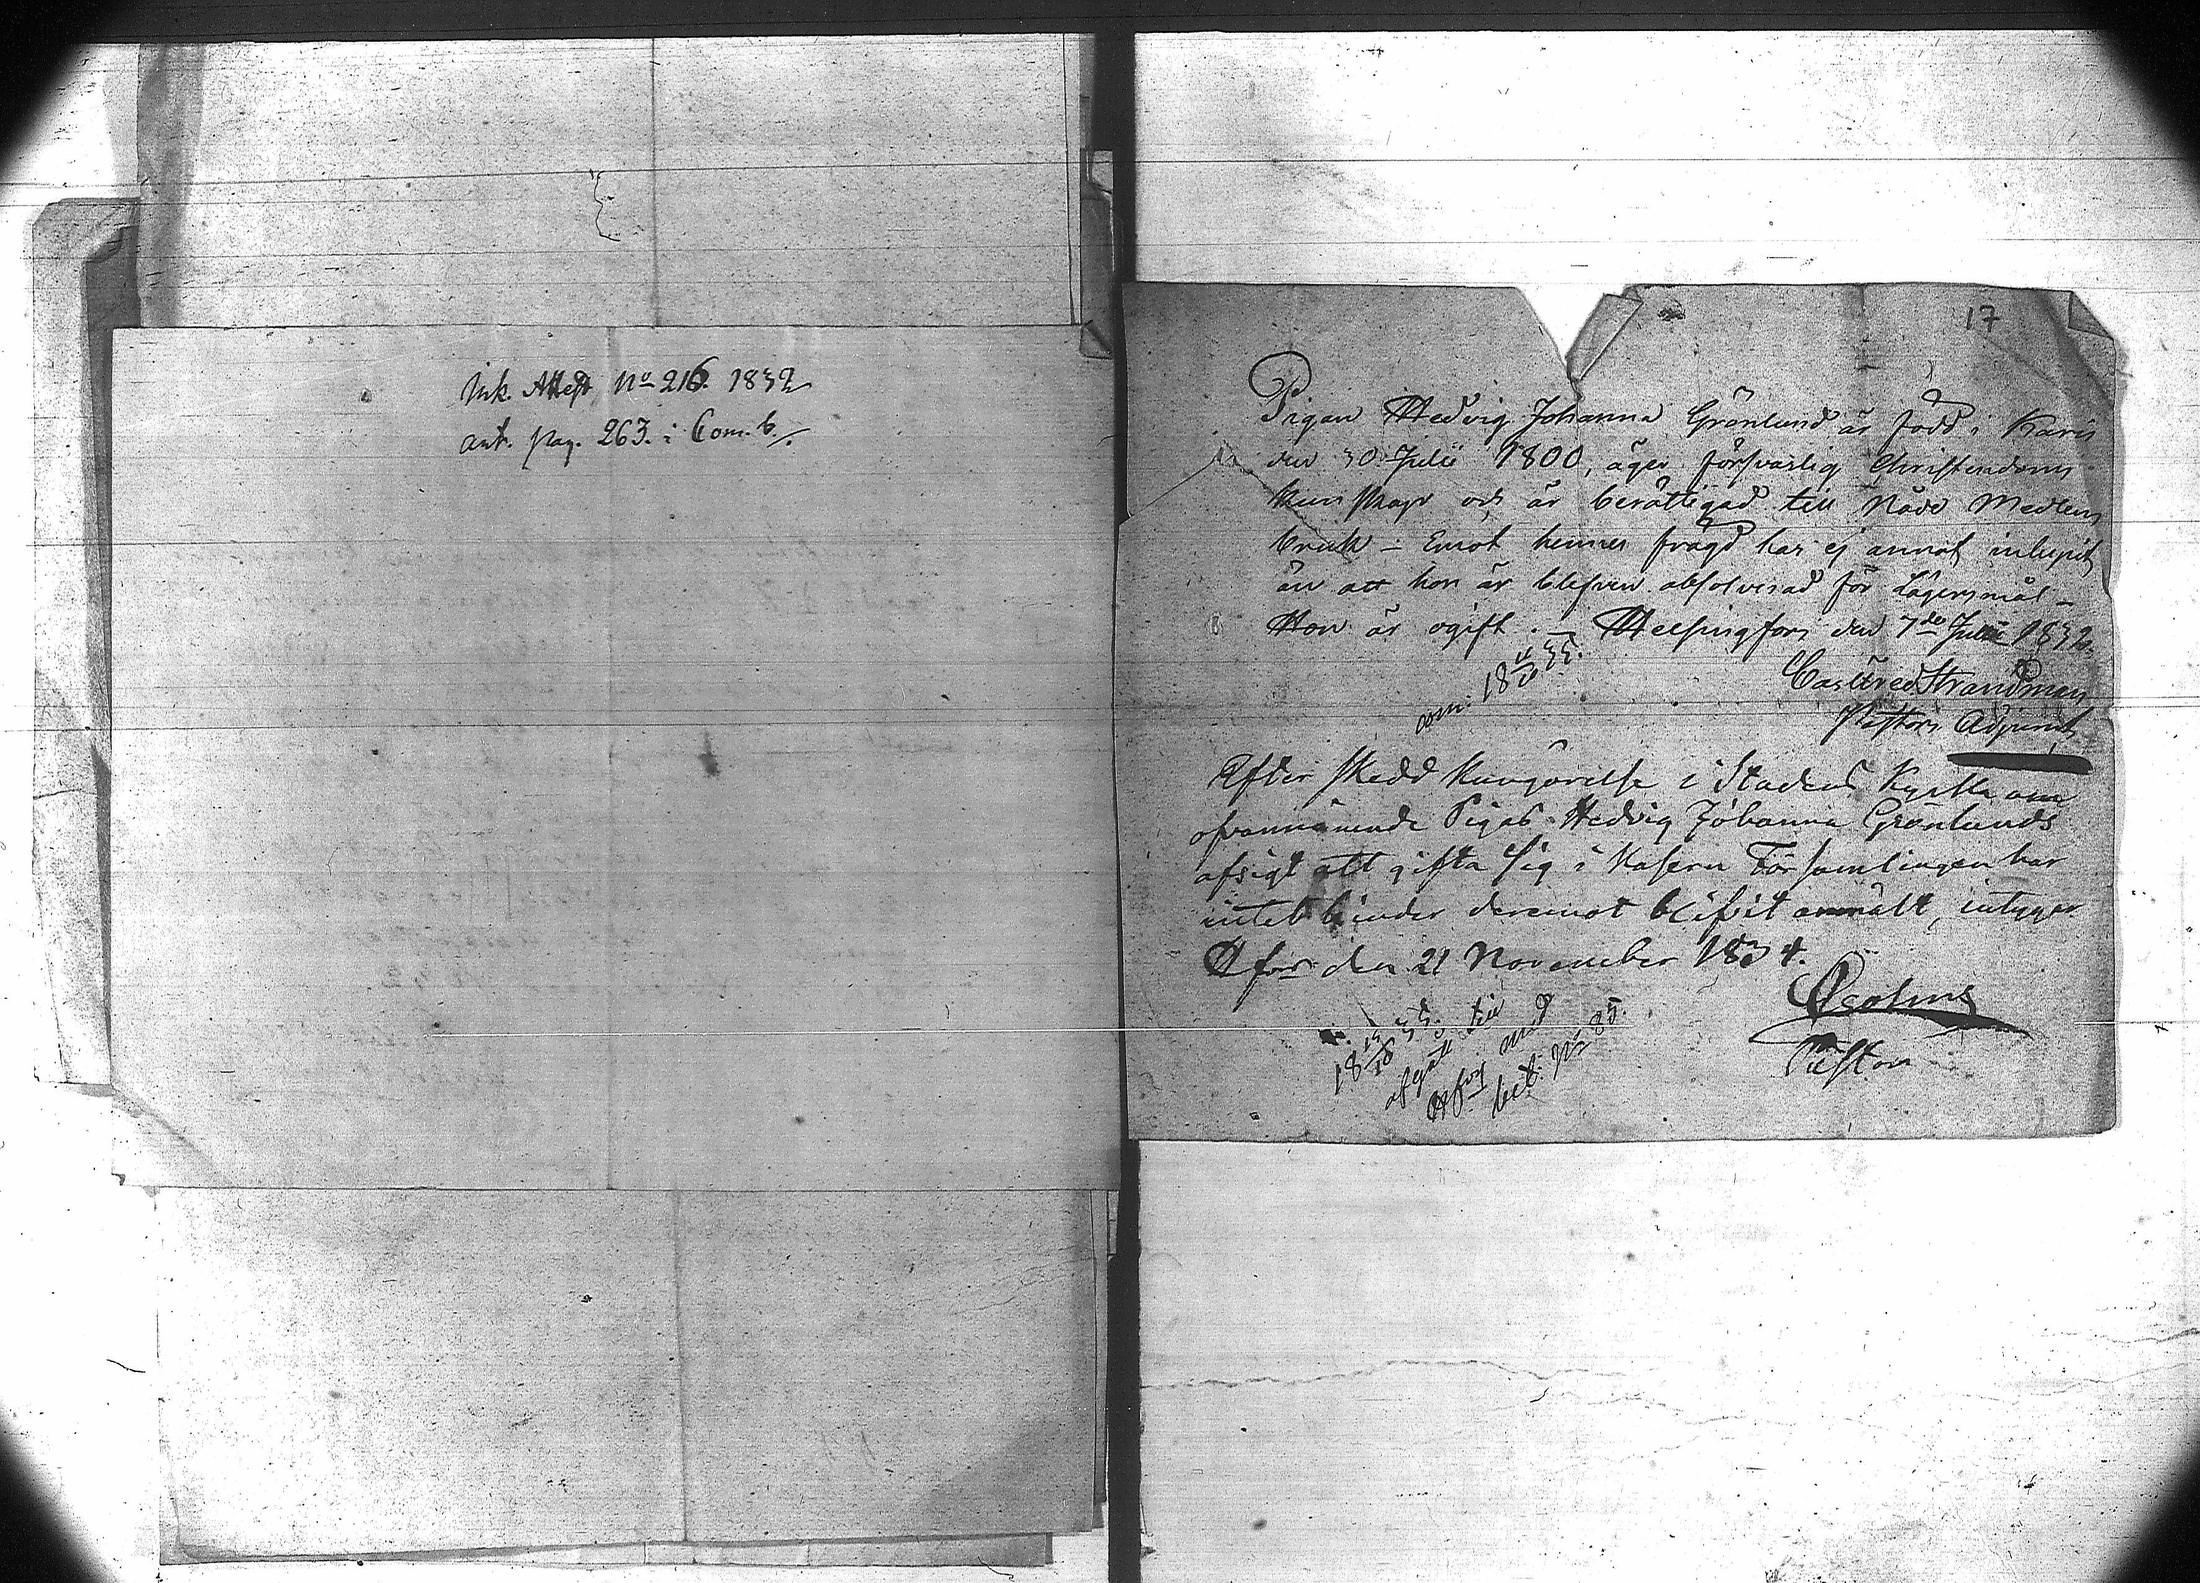 Ink. Attest No 216. 1832
ant. pag. 263. i Com. b.
17
Pigan Hedvig Johanna Grönlund är född i Karis
den 30 Julii 1800, äger försvarlig Christendoms
kunskap och är berättigad till Nåde Medlens
bruk – Emot hennes frägd har ej annat inlupit
än att hon är blefven absolverad för Lägersmål –
Hon är ogift. – Helsingfors den 7de Julii 1832.
Strandman
Pastors Adjunct
18 35.
Efter skedd kungörelse i Stadens kyrka om
ofvannämnde Pigas Hedvig Johanna Grönlunds
afsigt att gifta sig i Kasern Församlingen har
intet hinder deremot blifvit anmält, intygar
Hfors den 21 November 1834.
Pastor
18 35.
afgått till
Hfors med
bet. No 85.